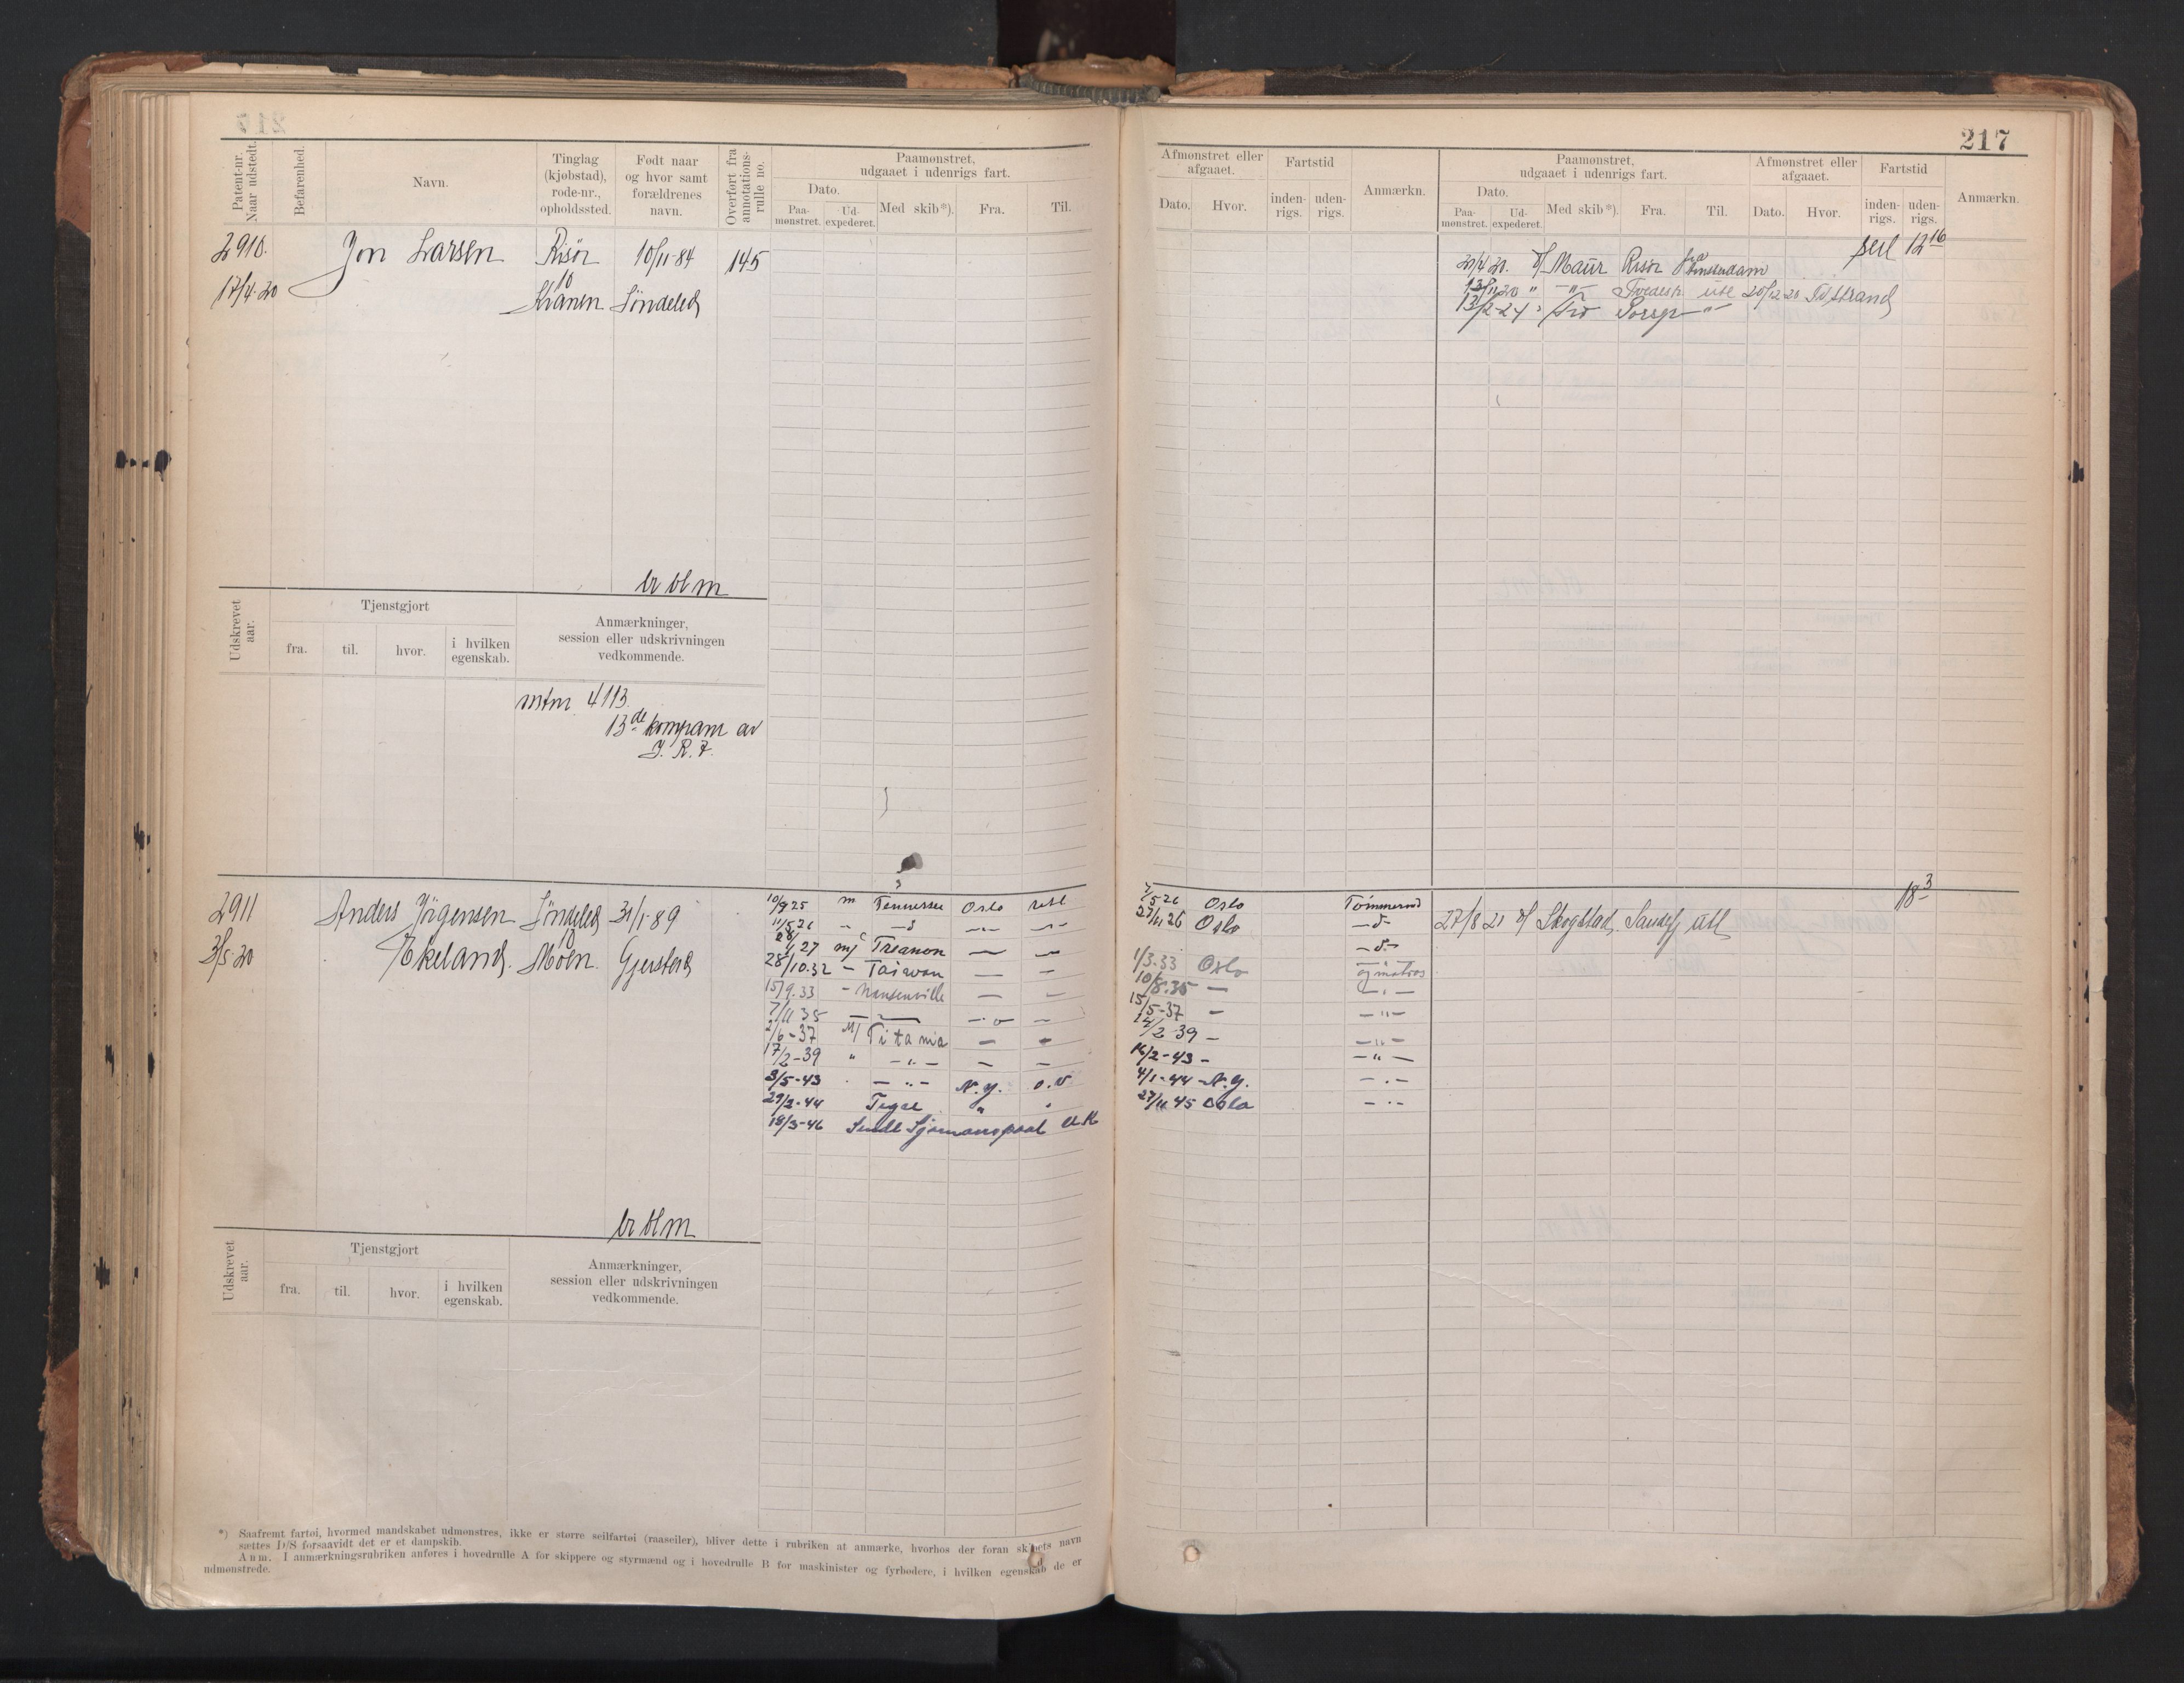 217
Patent-nr. Naar udstedt.
Befarenhed.
Navn.
Tinglag (kjøbstad), rode-nr., opholdssted.
Født naar og hvor samt forældrenes navn.
Overført fra annotations-rulle no.
Paamønstret, udgaaet i udenrigs fart.
Dato.
Paa-mønstret.
Ud-expederet.
Med skib*).
Fra.
Til.
Afmønstret eller afgaaet.
Dato.
Hvor.
Fartstid
inden-rigs.
uden-rigs.
Anmærkn.
Paamønstret, udgaaet i udenrigs fart.
Dato.
Paa-mønstret.
Ud-expederet.
Med skib*).
Fra.
Til.
Afmønstret eller afgaaet.
Dato.
Hvor.
Fartstid
inden-rigs.
uden-rigs.
Anmærkn.
2910. Jon Larsen Risør 10/11-84 145
17/4.20 10
Kranen Søndeled
seil 12 16
20/4 20. d/ Maur Risør Amsterdam
13/11 20 " -"- Tvedestr. utl 20/12 20 Tvstrand
13/2-21 " Tro Porsgr -"-
Udskrevet aar.
Tjenstgjort
fra.
til.
hvor.
i hvilken egenskab.
Anmærkninger, session eller udskrivningen vedkommende.
mtm 4113
13de kompani av
I. R. 7.
2911 Anders Jørgensen Søndeled 31/1-89
3/5.20 Ekeland. 10 Moen Gjerstad
18 3
10/9 25 m Tennessee Oslo utl 7/5 26 Oslo Tømmermd
11/5 26 " - d - - 27/11 26 Oslo - d -
28/1 27 m/ Treanon - - - d -
28/10.32 - Taiwan - - 1/3.33 Oslo og matros
15/9.33 - Nansenville - - 10/8.35 - - " -
7/11 35 - - - - 15/5-37 - - " -
2/6-37 M/ Titania - - 14/2 39 - - " -
17/2-39 " - " - - - 16/2-43 - - " -
3/5-43 - " - N.Y. o.v 4/1-44 - N.Y. - " -
29/2-44 Tigre " " 27/11 45 Oslo - " -
18/3-46 Sendt Sjømannspoal U.K
27/8 21 d/ Skogstad Sandefj utl
Udskrevet aar.
Tjenstgjort
fra.
til.
hvor.
i hvilken egenskab.
Anmærkninger, session eller udskrivningen vedkommende.
*) Saafremt fartøi, hvormed mandskabet udmønstres, ikke er større seilfartøi (raaseiler), bliver dette i rubriken at anmærke, hvorhos der foran skibets navn
sættes D/S forsaavidt det er et dampskib.
Anm. I anmærkningsrubriken anføres i hovedrulle A for skippere og styrmænd og i hovedrulle B for maskinister og fyrbødere, i hvilken egenskab de er
udmønstrede.